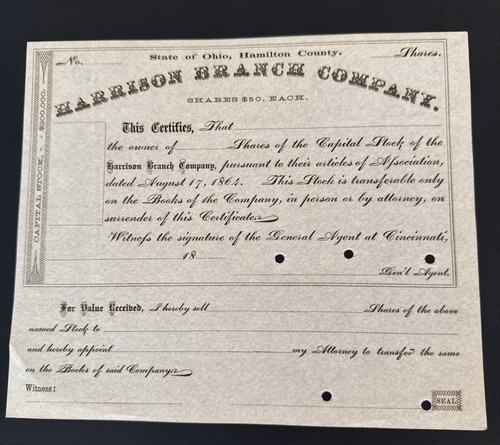 No. State of Ohio, Hamilton County. Shares.
HARRISON BRANCH COMPANY.
SHARES $50. EACH.
CAPITAL STOCK, - - $200,000.
This Certifies, That
the owner of Shares of the Capital Stock of the
Harrison Branch Company, pursuant to their articles of Association,
dated August 17, 1864. This Stock is transferable only
on the Books of the Company, in person or by attorney, on
surrender of this Certificate.
Witness the signature of the General Agent at Cincinnati,
18
Gen'l Agent.
For Value Received, I hereby sell Shares of the above
named Stock to
and hereby appoint my Attorney to transfer the same
on the Books of said Company.
Witness:
SEAL